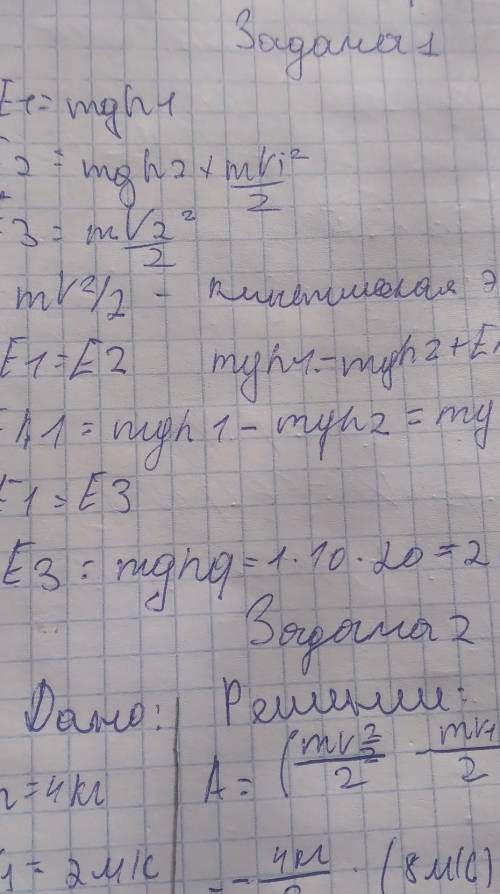 Задача 1
E1 = mgh1
2 = mgh2 + mV1²/2
3 = mV2²/2
mV²/2 - кинетическая э
E1 = E2 mgh1 = mgh2 + E
1 = mgh1 - mgh2 = mg
E1 = E3
E3 = mgh = 1·10·20 = 2
Задача 2
Дано: Решение:
= 4 кг A = (mV2²/2 - mV1/2
1 = 2 м/с = - 4 кг · (8 м/с)